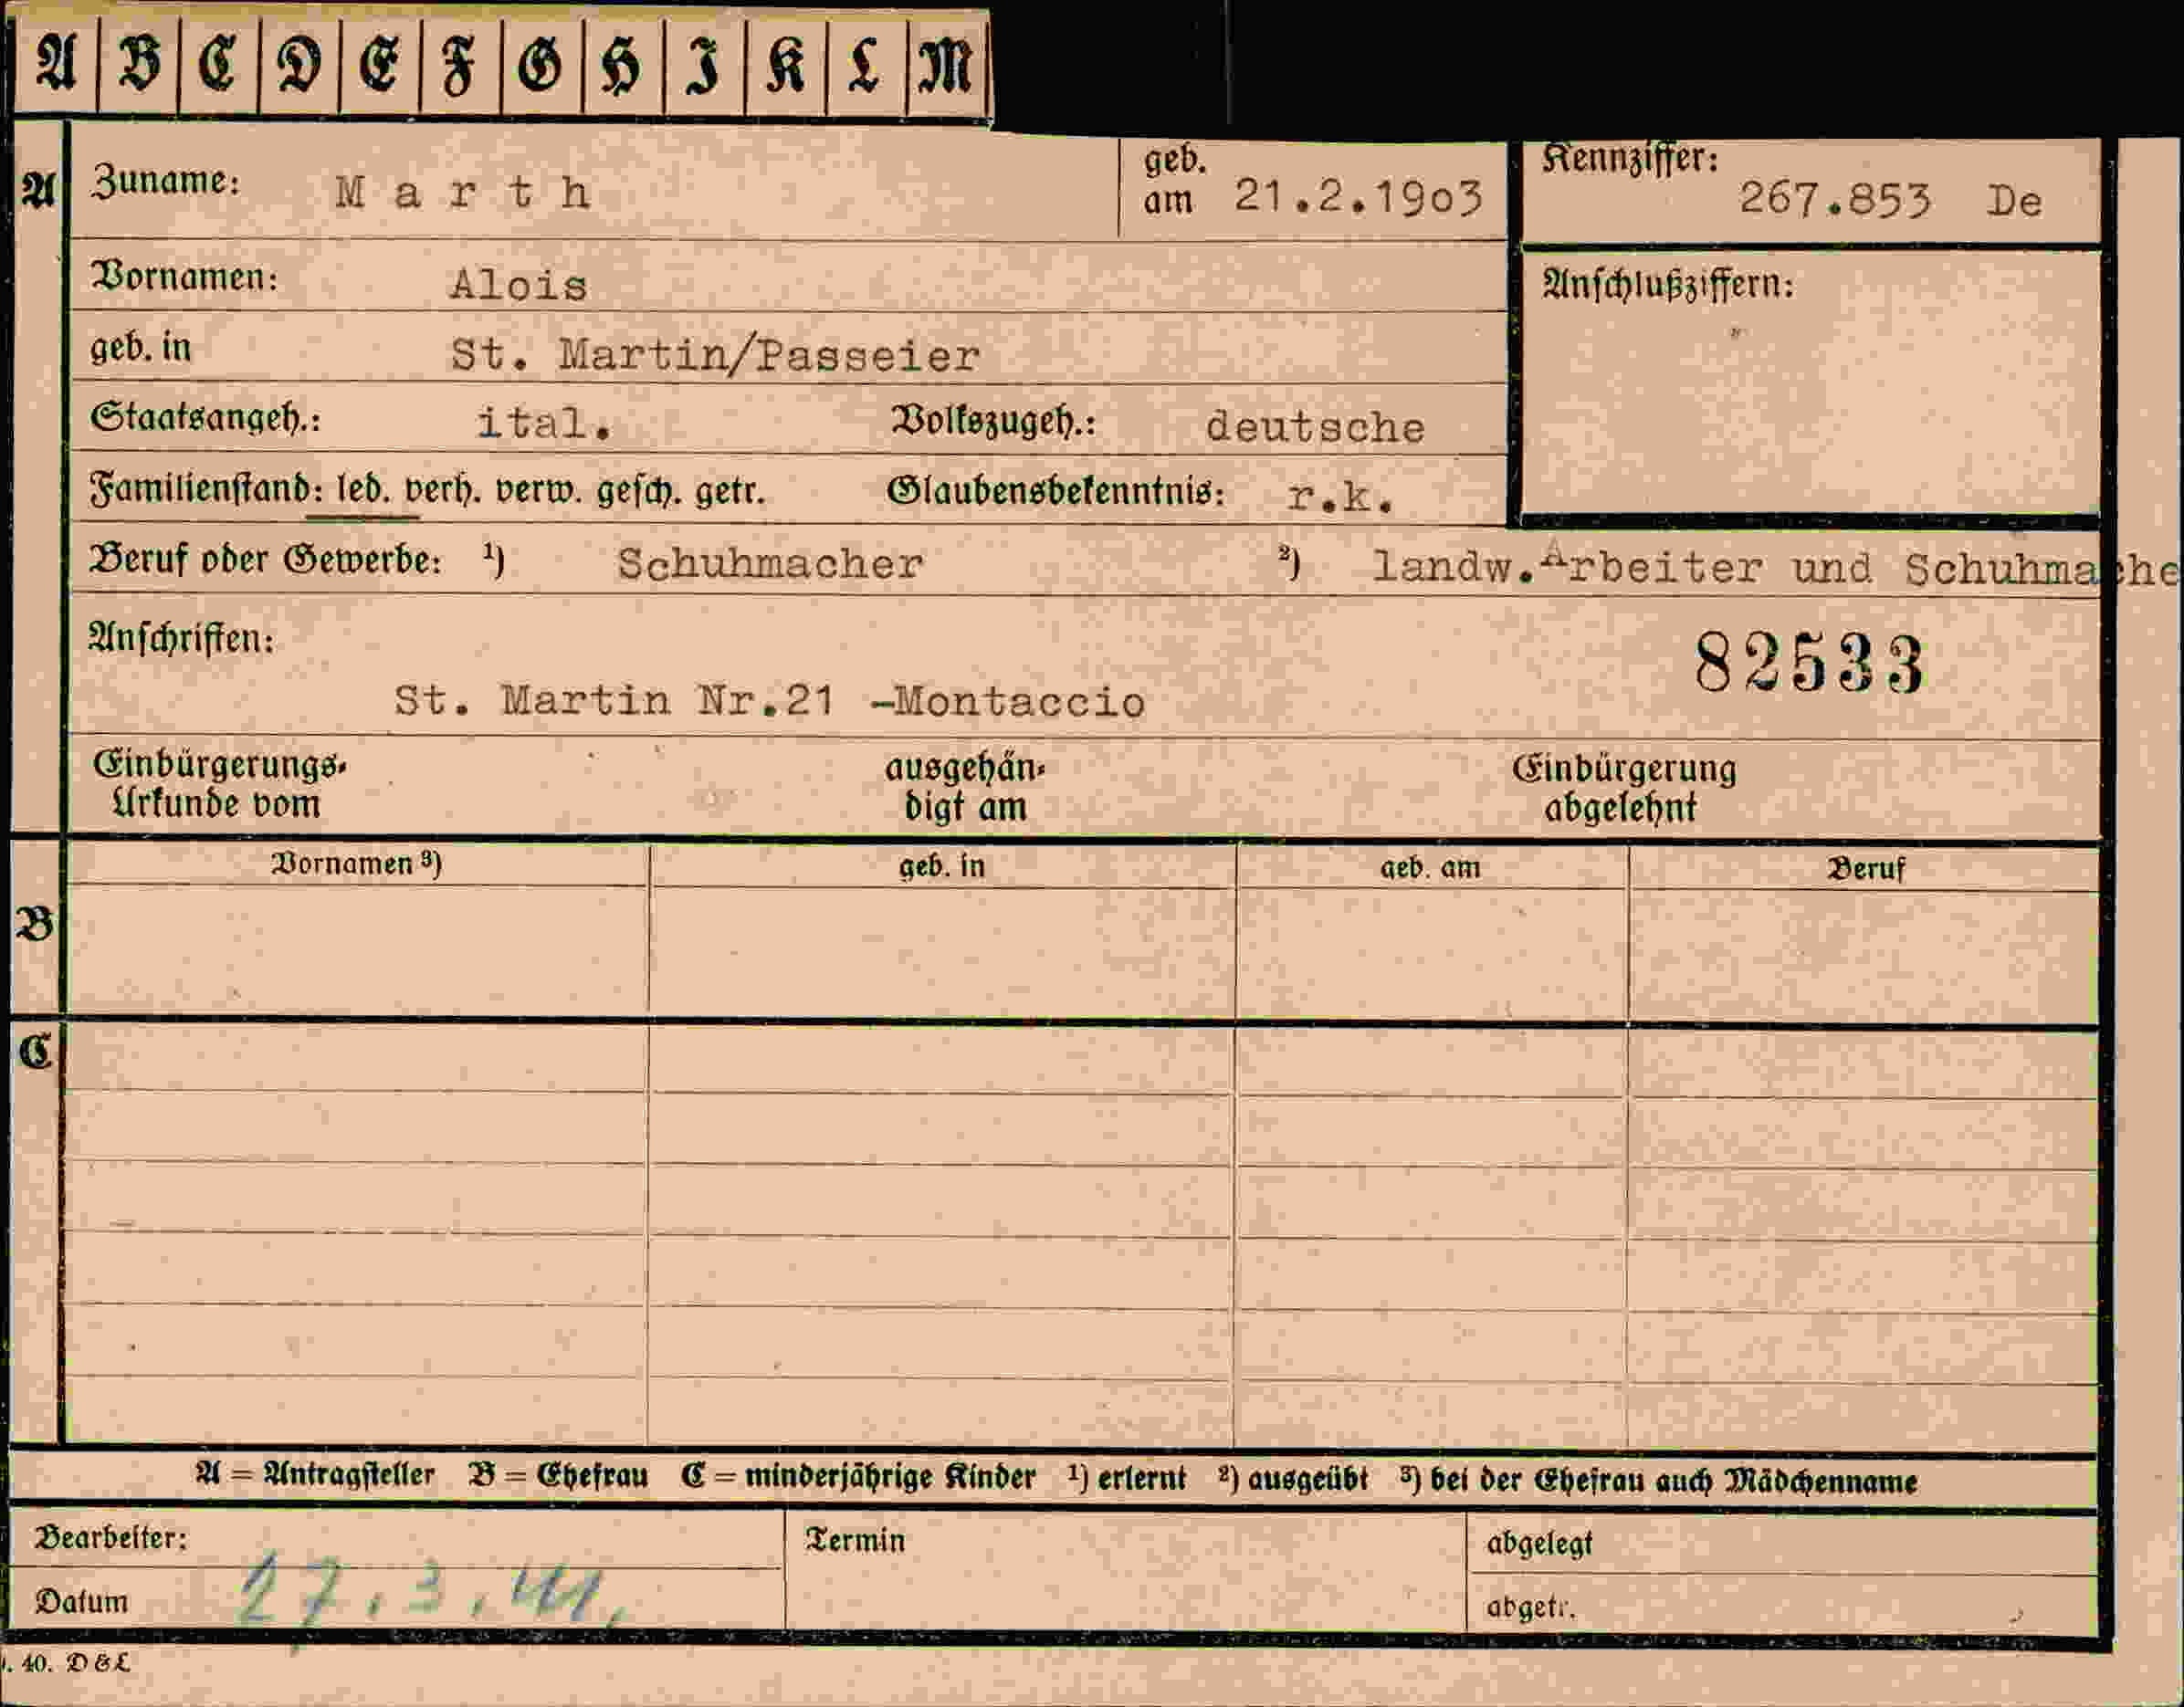 A B C D E F G H I K L M
A Zuname: Marth geb. am 21.2.1903 Kennziffer: 267.853 De
Vornamen: Alois Anschlußziffern:
geb. in St. Martin/Passeier
Staatsangeh.: ital. Volkszugeh.: deutsche
Familienstand: led. verh. verw. gesch. getr. Glaubensbekenntnis: r.k.
Beruf oder Gewerbe: ¹) Schuhmacher ²) landw.Arbeiter und Schuhmache
Anschriften: 82533
St. Martin Nr.21 -Montaccio
Einbürgerungs- ausgehän- Einbürgerung
Urkunde vom digt am abgelehnt
Vornamen ³) geb. in geb. am Beruf
B
C
A = Antragsteller B = Ehefrau C = minderjährige Kinder ¹) erlernt ²) ausgeübt ³) bei der Ehefrau auch Mädchenname
Bearbeiter: Termin abgelegt
Datum 27.3.41. abgetr.
. 40. D & L